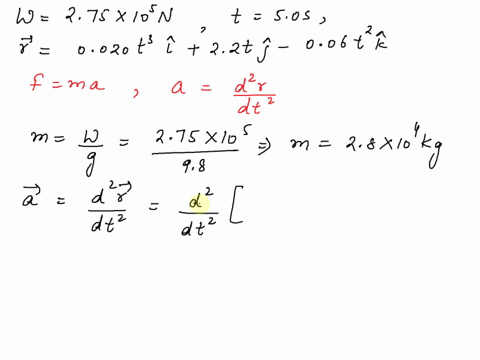 W = 2.75 × 10⁵ N , t = 5.0 s ,
r⃗ = 0.020 t³ î + 2.2 t ĵ − 0.06 t² k̂
f = ma , a = d²r/dt²
m = W/g = 2.75 × 10⁵/9.8 ⇒ m = 2.8 × 10⁴ kg
a⃗ = d²r⃗/dt² = d²/dt² [